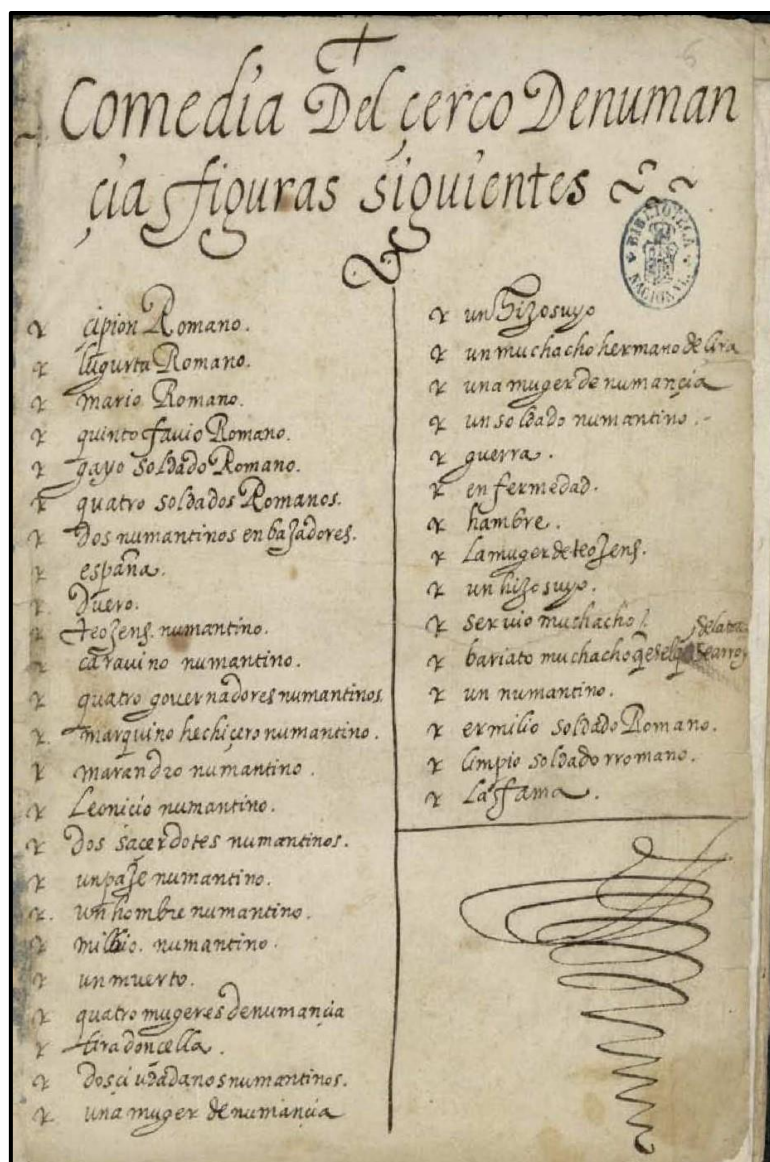 6
Comedia Del çerco Denuman
çia figuras siguientes
BIBLIOTECA
NACIONAL
çipion Romano.
Iugurta Romano.
mario Romano.
quinto favio Romano.
gayo soldado Romano.
quatro soldados Romanos.
dos numantinos enbajadores.
españa.
Duero.
teojenes. numantino.
caravino numantino.
quatro governadores numantinos.
marquino hechiçero numantino.
marandro numantino.
Leonicio numantino.
Dos sacerdotes numantinos.
un paje numantino.
un hombre numantino.
milbio. numantino.
un muerto.
quatro mugeres de numançia
lira doncella.
dos ciudadanos numantinos.
una muger de numançia
un hijo suyo
un muchacho hermano de lira
una muger de numançia
un soldado numantino.
guerra.
enfermedad.
hambre.
La muger de teojens.
un hijo suyo.
servio muchacho
bariato muchacho qes el q se arroj
de la to
un numantino.
ermilio soldado Romano.
limpio soldado rromano.
La fama.